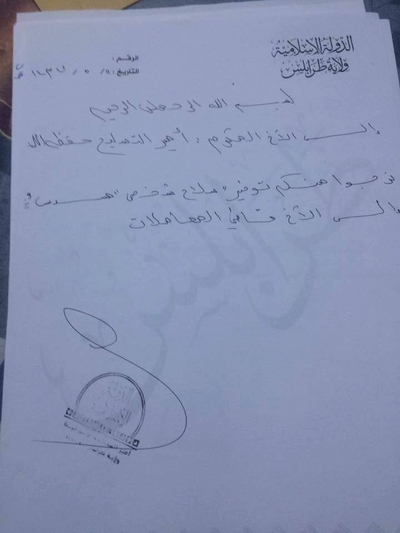 الدولة الإسلامية
ولاية طرابلس
الرقم:
التاريخ: ١١ / ٥ / ١٤٣٧ هـ
بسم الله الرحمن الرحيم
إلى الأخ المحترم: أمير التسليح حفظه الله
نرجوا منكم توفير "سلاح شخصي" "مسدس"
إلى الأخ قاضي المعاملات